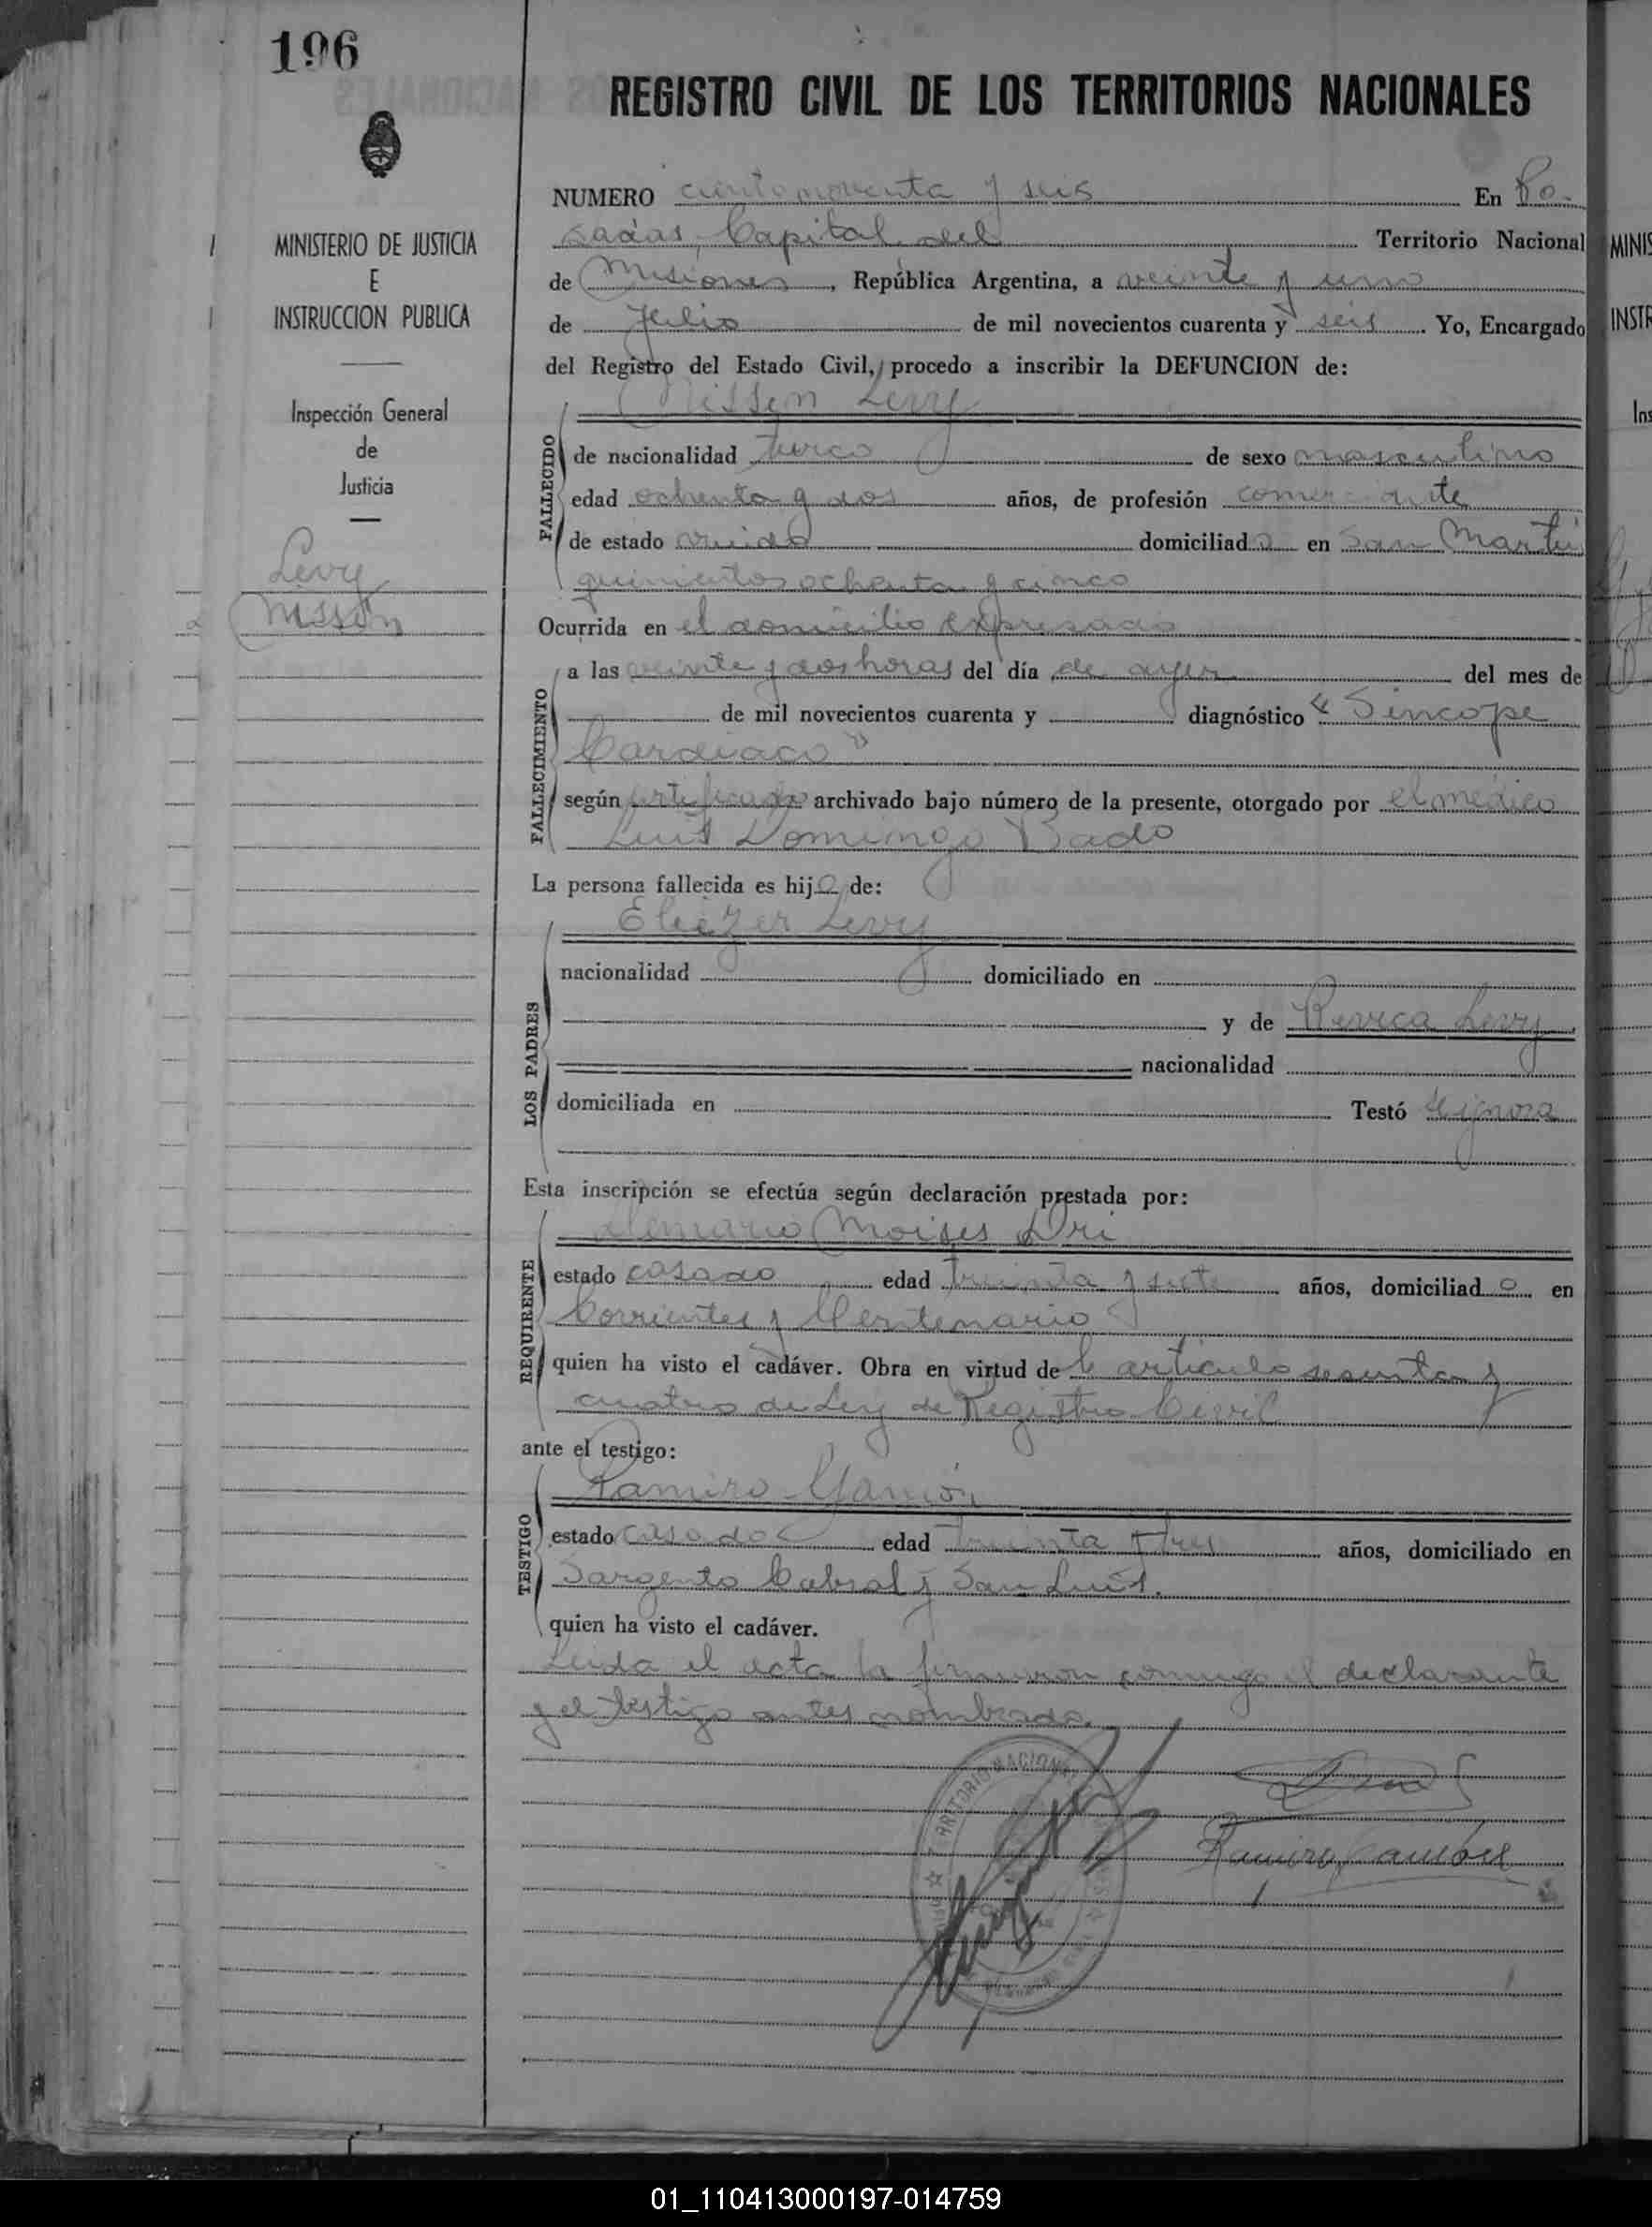 196
REGISTRO CIVIL DE LOS TERRITORIOS NACIONALES
MINISTERIO DE JUSTICIA
E
INSTRUCCION PUBLICA
Inspección General
de
Justicia
Levy
Nissin
NUMERO ciento noventa y seis En Po-
sadas, Capital del Territorio Nacional
de Misiones, República Argentina, a veinte y uno
de Julio de mil novecientos cuarenta y seis. Yo, Encargado
del Registro del Estado Civil, procedo a inscribir la DEFUNCION de:
Nissin Levy
FALLECIDO
de nacionalidad turco de sexo masculino
edad ochenta y dos años, de profesión comerciante
de estado viudo domiciliado en San Martin
quinientos ochenta y cinco
Ocurrida en el domicilio expresado
FALLECIMIENTO
a las veinte y dos horas del día de ayer del mes de
de mil novecientos cuarenta y diagnóstico "Sincope
Cardiaco"
según certificado archivado bajo número de la presente, otorgado por el médico
Luis Domingo Bado
La persona fallecida es hijo de:
Eliezer Levy
LOS PADRES
nacionalidad domiciliado en
y de Revica Levy
nacionalidad
domiciliada en Testó se ignora
Esta inscripción se efectúa según declaración prestada por:
Moises Dri
REQUIRENTE
estado casado edad treinta y siete años, domiciliado en
Corrientes y Centenario
quien ha visto el cadáver. Obra en virtud de articulo sesenta y
cuatro de Ley de Registro Civil
ante el testigo:
Ramiro
TESTIGO
estado casado edad treinta y tres años, domiciliado en
Sargento Cabral y San Luis.
quien ha visto el cadáver.
Leida el acta la firmaron conmigo el declarante
y el testigo antes nombrado.
01_110413000197-014759